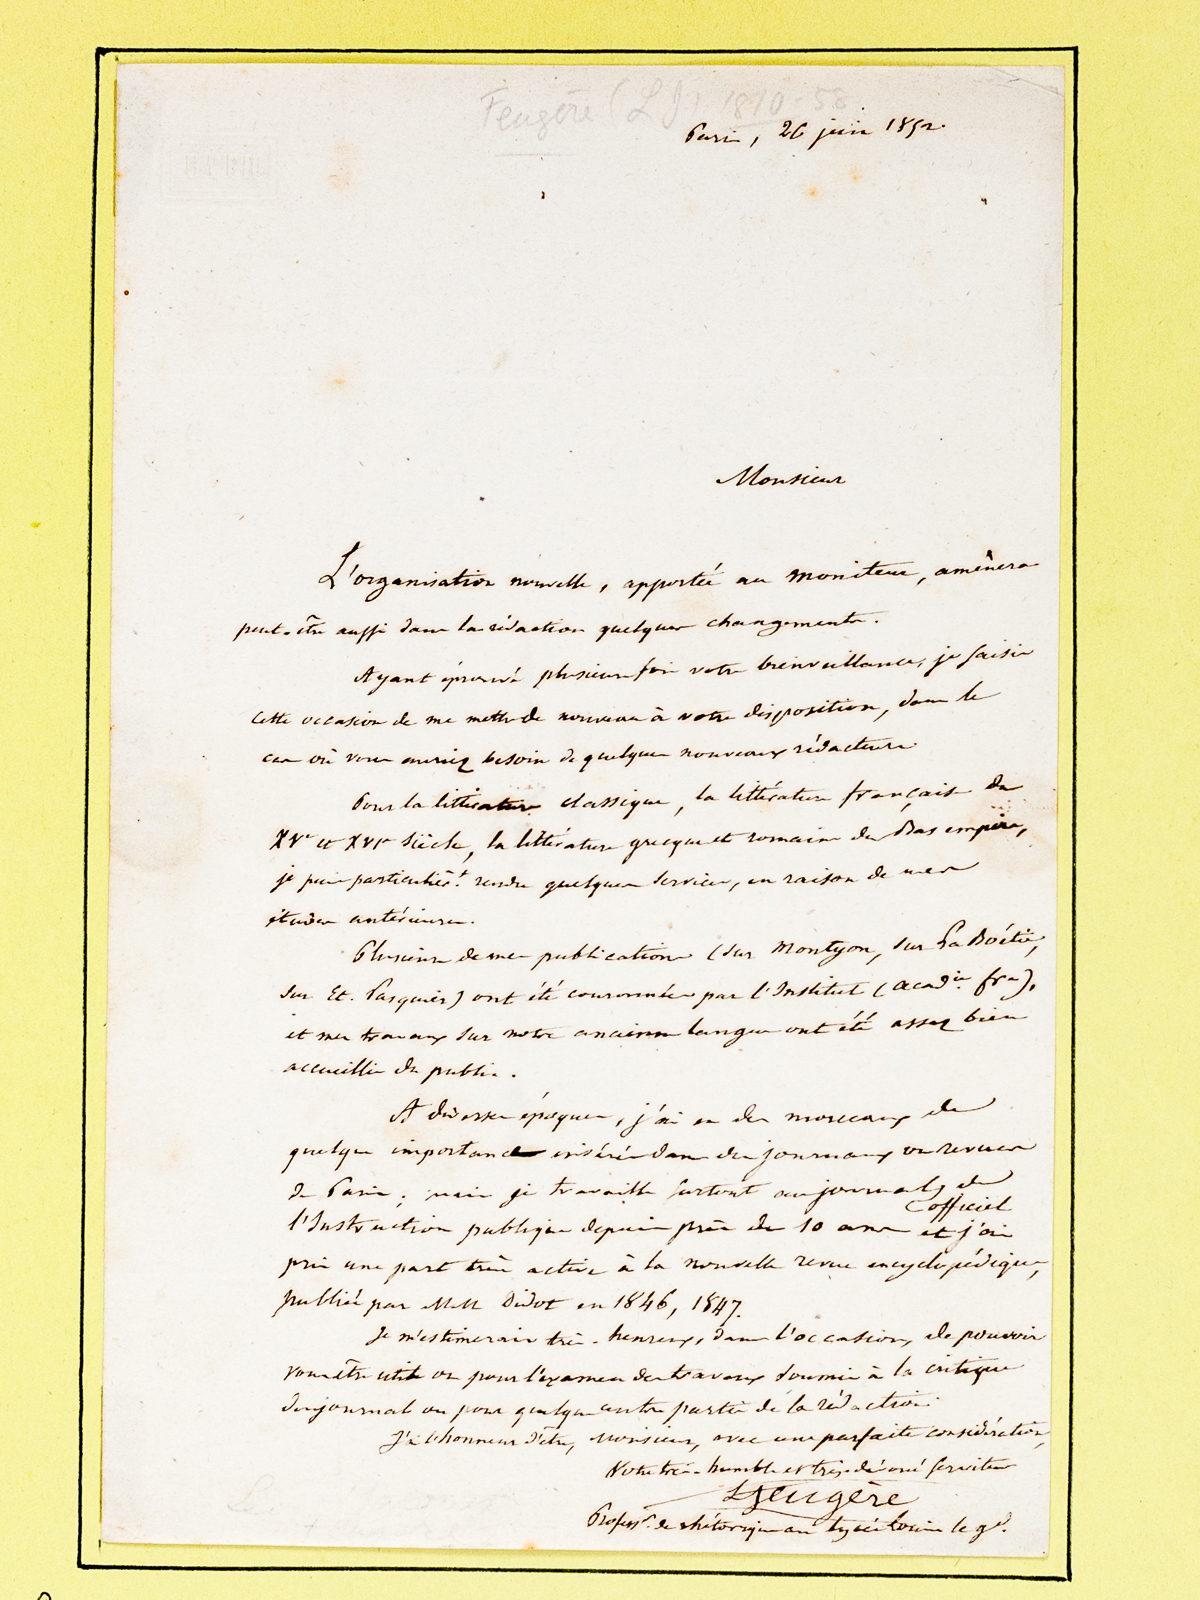 Feugère (L J) 1810-58
Paris, 26 juin 1852
Monsieur
L'organisation nouvelle, apportée au Moniteur, amênera
peut-être aussi dans la rédaction quelques changements.
Ayant éprouvé plusieurs fois votre bienveillance, je saisis
cette occasion de me mettre de nouveau à votre disposition, dans le
cas où vous auriez besoin de quelques nouveaux rédacteurs.
Pour la littérature classique, la littérature française des
XVe et XVIe siècles, la littérature grecque et romaine du Bas empire,
je puis particulièrt. rendre quelques services, en raison de mes
études antérieures.
Plusieurs de mes publications (sur Montyon, sur La Boétie,
sur Et. Pasquier) ont été couronnées par l'Institut (Acadie. fre),
et mes travaux sur notre ancienne langue ont été assez bien
accueillis du public.
A diverses époques, j'ai eu des morceaux de
quelque importance insérés dans des journaux ou revues
de Paris; mais je travaille surtout au journal de
officiel
l'Instruction publique depuis près de 10 ans et j'ai
pris une part très active à la nouvelle revue encyclopédique,
publiée par MM Didot en 1846, 1847.
Je m'estimerais très-heureux, dans l'occasion, de pouvoir
vous être utile ou pour l'examen des travaux soumis à la critique
du journal ou pour quelque autre partie de la rédaction.
J'ai l'honneur d'être, Monsieur, avec une parfaite considération,
Votre très-humble et très-dévoué serviteur
LFeugère
Professr. de rhétorique au lycée Louis le gd.